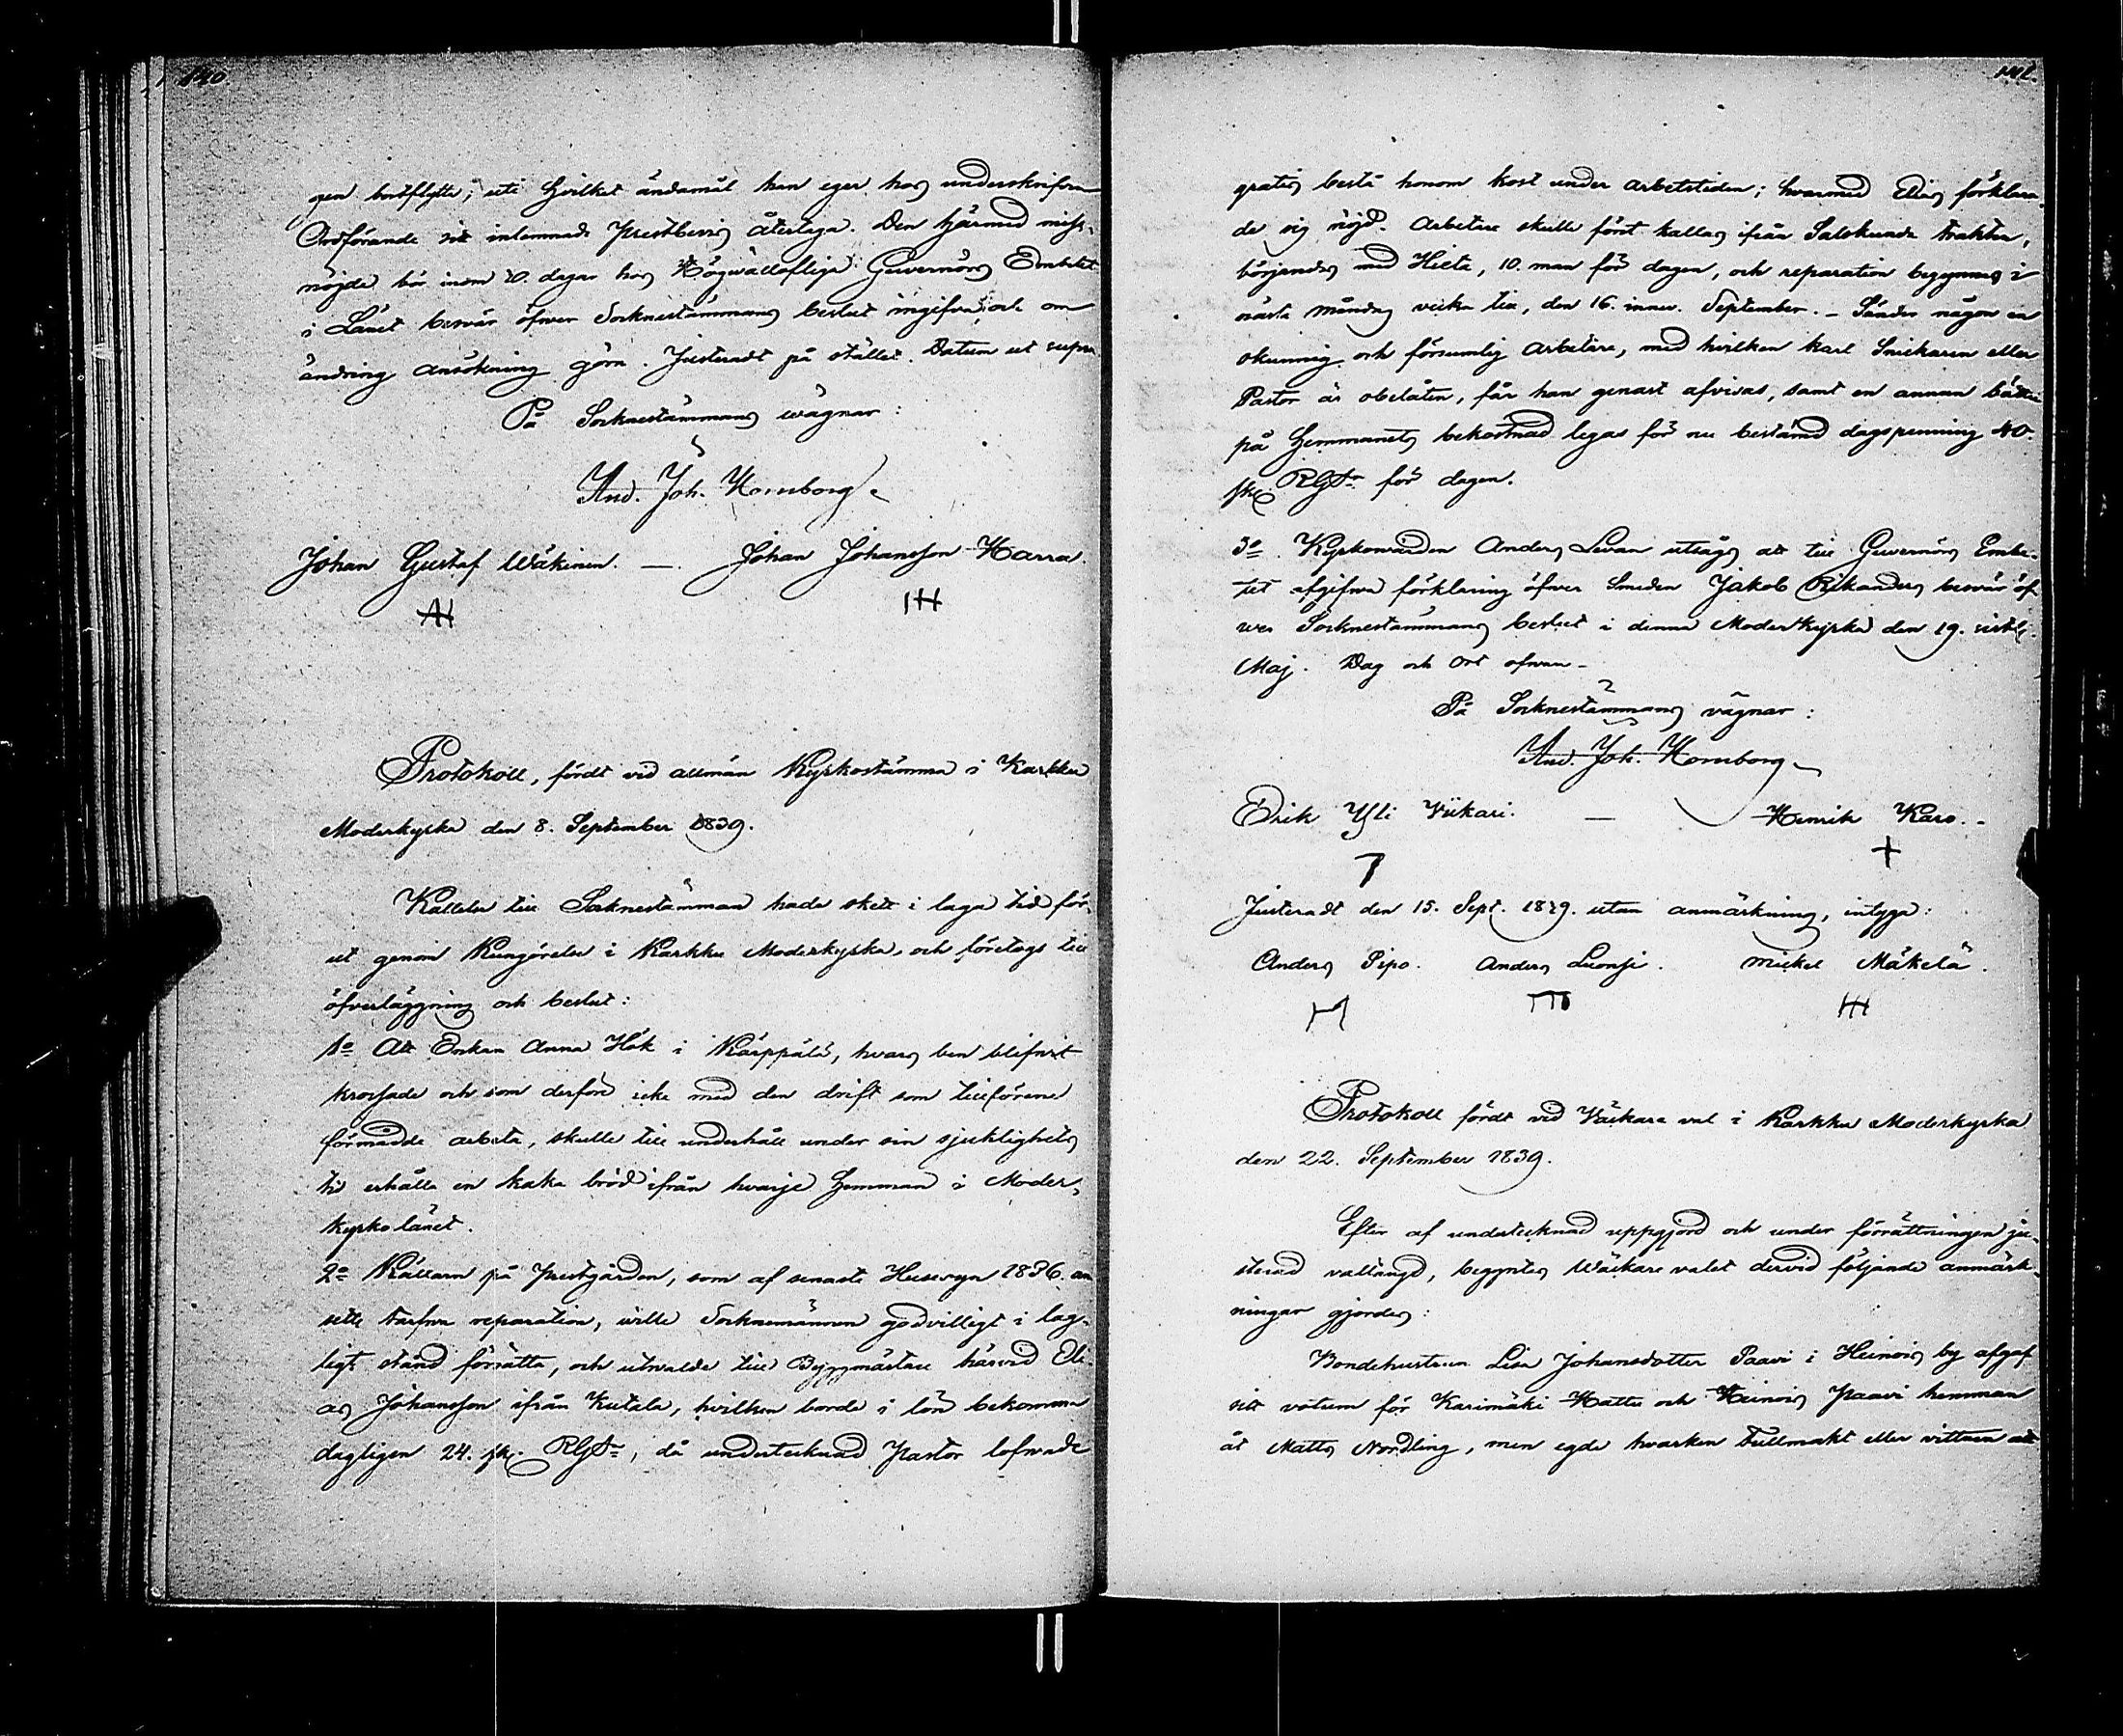 140.
gen bortflytte; uti hvilket ändamål han eger hos underskrifven
Ordförande sitt inlemnade Prestbevis återtaga. Den härmed miss-
nöjde bör inom 30. dagar hos Högwällofliga Guvernörs Embetet
i Länet besvär öfver Socknestämmans beslut ingifva, och om
ändring ansökning göra. Justeradt på stället. Datum ut supra
På Socknestämmans wägnar:
And. Joh. Hornborg
Johan Gustaf Wäkinen. — Johan Johansson Harra.
Protokoll, fördt vid allmän Kyrkostämma i Karkku
Moderkyrka den 8. September 1839.
Kallelse till Socknestämman hade skett i laga tid för-
ut genom Kungörelse i Karkku Moderkyrka, och företogs till
öfverläggning och beslut:
1o Att Enkan Anna Hök i Kärppälä, hvars ben blifvit
krossade och som derföre icke med den drift som tillförene
förmådde arbeta, skulle till underhåll under sin sjuklighets
tid erhålla en kaka bröd ifrån hvarje Hemman i Moder-
kyrkolänet.
2o Källaren på Prestgården, som af senaste Husesyn 1836. an-
setts tarfva reparation, wille Sockenmännen godvilligt i lag-
ligt stånd försätta, och utwalde till Byggmästare härvid Eli-
as Johansson ifrån Kutala, hvilken borde i lön bekomma
dagligen 24. sk. RGds, då undertecknad Pastor lofvade
141.
gratis bestå honom kost under arbetstiden; hvarmed Elias förklara-
de sig nöjd. Arbetare skulle först kallas ifrån Salokunda trakten,
börjandes med Hieta, 10. man för dagen, och reparation begynnes i
nästa Måndag vecka till, den 16. innev. September. – Sänder någon en
okunnig och försumlig Arbetare, med hvilken karl Snickaren eller
Pastor är obelåten, får han genast afvisas, samt en annan bättre
på Hemmanets bekostnad legas för nu bestämd dagspenning 40.
sk. RGds för dagen.
3o Kyrkovärden Anders Levan utsågs att till Guvernörs Embe-
tet afgifva förklaring öfver Smeden Jakob Rikanders besvär öf-
ver Socknestämmans beslut i denna Moderkyrka den 19. sistl.
Maj. Dag och Ort ofvan –
På Socknestämmans vägnar:
And. Joh. Hornborg
Erik Yli Viikari. — Henrik Karo. –
Justeradt den 15. Sept. 1839. utan anmärkning, intyga:
Anders Pipo. Anders Luonsi. Mickel Mäkelä.
Protokoll fördt vid Väckare val i Karkku Moderkyrka
den 22. September 1839.
Efter af undertecknad uppgjord och under förrättningen ju-
sterad vallängd, begyntes Wäckare valet dervid följande anmärk-
ningar gjordes:
Bondehustrun Lisa Johansdotter Paavi i Heinois by afgaf
sitt votum för Karimäki Hattu och Heinois Paavi hemman
åt Matts Nordling, men egde hvarken Fullmakt eller vittnen att